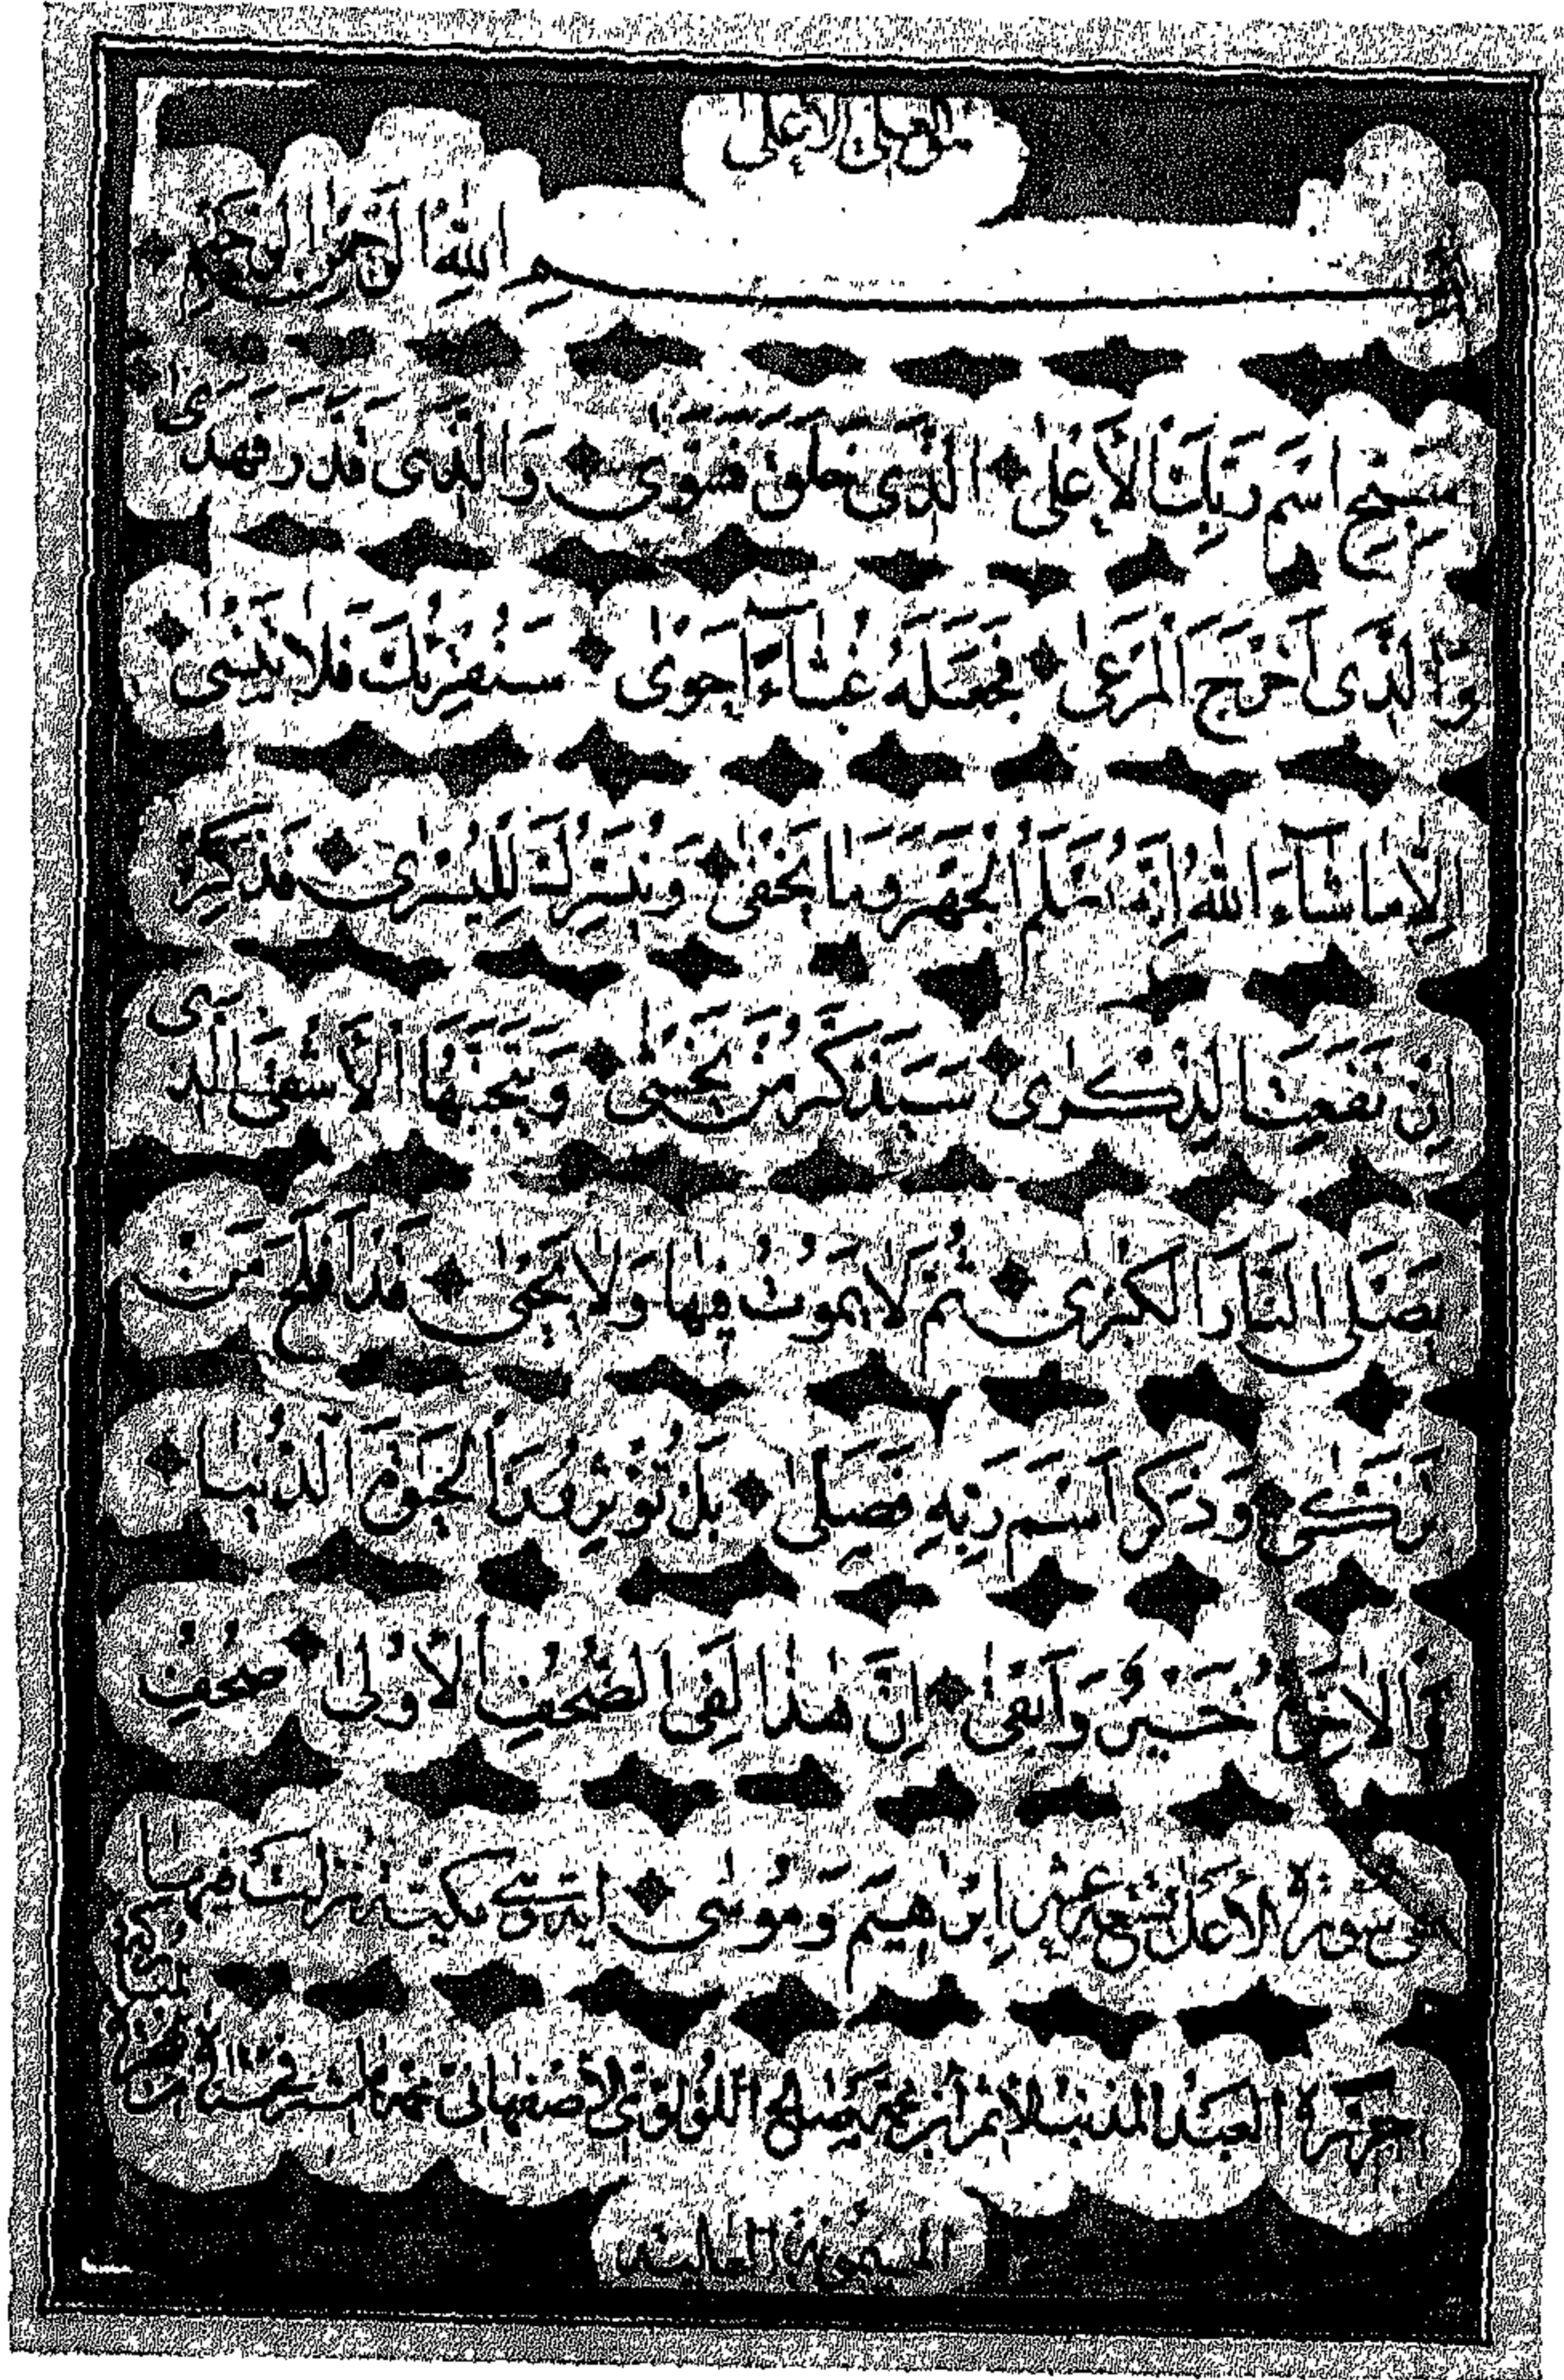 هو العلي الأعلى
بِسْمِ اللهِ الرَّحْمٰنِ الرَّحِيمِ
سَبِّحِ اسْمَ رَبِّكَ الْأَعْلَى الَّذِي خَلَقَ فَسَوّٰى وَالَّذِي قَدَّرَ فَهَدٰى
وَالَّذِي أَخْرَجَ الْمَرْعٰى فَجَعَلَهُ غُثَاءً أَحْوٰى سَنُقْرِئُكَ فَلَا تَنْسٰى
إِلَّا مَا شَاءَ اللهُ إِنَّهُ يَعْلَمُ الْجَهْرَ وَمَا يَخْفٰى وَنُيَسِّرُكَ لِلْيُسْرٰى فَذَكِّرْ
إِنْ نَفَعَتِ الذِّكْرٰى سَيَذَّكَّرُ مَنْ يَخْشٰى وَيَتَجَنَّبُهَا الْأَشْقَى الَّذِي
يَصْلَى النَّارَ الْكُبْرٰى ثُمَّ لَا يَمُوتُ فِيهَا وَلَا يَحْيٰى قَدْ أَفْلَحَ مَنْ
تَزَكّٰى وَذَكَرَ اسْمَ رَبِّهِ فَصَلّٰى بَلْ تُؤْثِرُونَ الْحَيٰوةَ الدُّنْيَا
وَالْآخِرَةُ خَيْرٌ وَأَبْقٰى إِنَّ هٰذَا لَفِي الصُّحُفِ الْأُولٰى صُحُفِ
سورة الأعلى تسعة عشر إِبْرٰهِيمَ وَمُوسٰى اية مكية نزلت فيها
حرره العبد المذنب صالح اللؤلؤي الأصفهاني